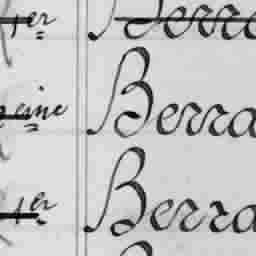 er Berra
eine Berra
1er Berra